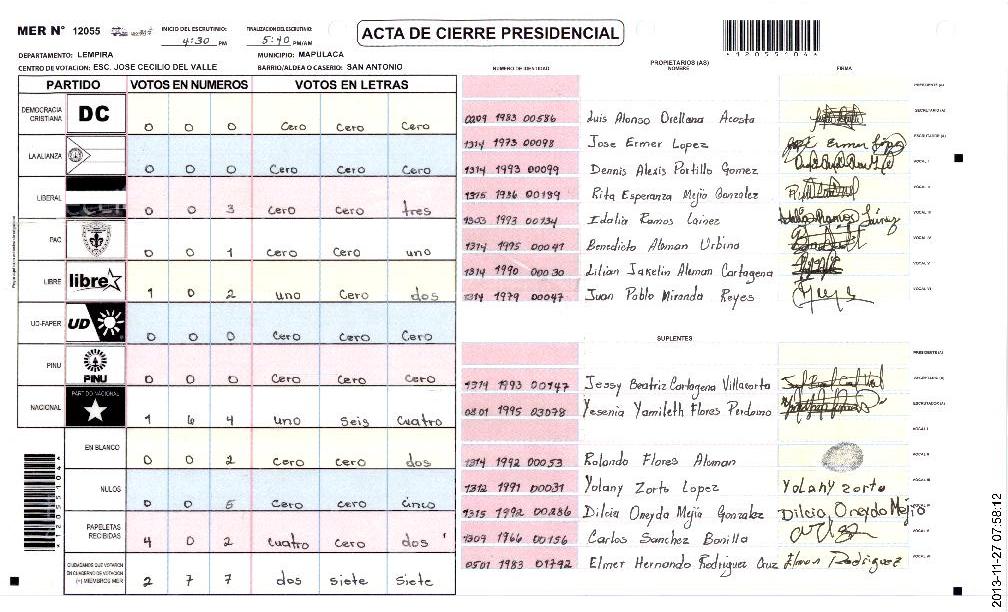 MER N° 12055 INICIO DEL ESCRUTINIO: 4:30 PM FINALIZACION DEL ESCRUTINIO: 5:40 PM/AM
ACTA DE CIERRE PRESIDENCIAL
*12055104*
DEPARTAMENTO: LEMPIRA MUNICIPIO: MAPULACA
CENTRO DE VOTACION: ESC. JOSE CECILIO DEL VALLE BARRIO/ALDEA O CASERIO: SAN ANTONIO
PARTIDO VOTOS EN NUMEROS VOTOS EN LETRAS
DEMOCRACIA CRISTIANA DC 0 0 0 Cero Cero Cero
LA ALIANZA 0 0 0 Cero Cero Cero
LIBERAL 0 0 3 Cero Cero tres
PAC 0 0 1 Cero Cero uno
LIBRE libre 1 0 2 uno Cero dos
UD-FAPER UD 0 0 0 Cero Cero Cero
PINU PINU 0 0 0 Cero Cero Cero
NACIONAL PARTIDO NACIONAL 1 6 4 uno Seis Cuatro
EN BLANCO 0 0 2 Cero Cero dos
NULOS 0 0 5 Cero Cero Cinco
PAPELETAS RECIBIDAS 4 0 2 Cuatro Cero dos
CIUDADANOS QUE VOTARON EN CUADERNO DE VOTACION (+) MIEMBROS MER 2 7 7 dos siete Siete
PROPIETARIOS (AS)
NUMERO DE IDENTIDAD NOMBRE FIRMA
PRESIDENTE (A)
0209 1983 00586 Luis Alonso Orellana Acosta SECRETARIO (A)
1314 1973 00098 Jose Ermer Lopez Jose Ermer López ESCRUTADOR (A)
1314 1993 00099 Dennis Alexis Portillo Gomez VOCAL I
1315 1986 00189 Rita Esperanza Mejia Gonzalez VOCAL II
1303 1993 00134 Idalia Ramos Lainez Idalia Ramos Láinez VOCAL III
1314 1975 00041 Benedicto Aleman Urbina VOCAL IV
1314 1990 00030 Lilian Jakelin Aleman Cartagena VOCAL V
1314 1979 00047 Juan Pablo Miranda Reyes VOCAL VI
SUPLENTES
PRESIDENTE (A)
1314 1993 00147 Jessy Beatriz Cartagena Villacorta SECRETARIO (A)
0801 1995 03078 Yesenia Yamileth Flores Perdomo ESCRUTADOR (A)
VOCAL I
1314 1992 00053 Rolando Flores Aleman VOCAL II
1312 1991 00031 Yolany Zorto Lopez Yolany zorto VOCAL III
1315 1992 00286 Dilcia Oneyda Mejia Gonzalez Dilcia Oneyda Mejia
1309 1966 00156 Carlos Sanchez Bonilla VOCAL V
0501 1983 01792 Elmer Hernando Rodriguez Cruz Elmer Rodriguez VOCAL VI
*12055104*
2013-11-27 07:58:12